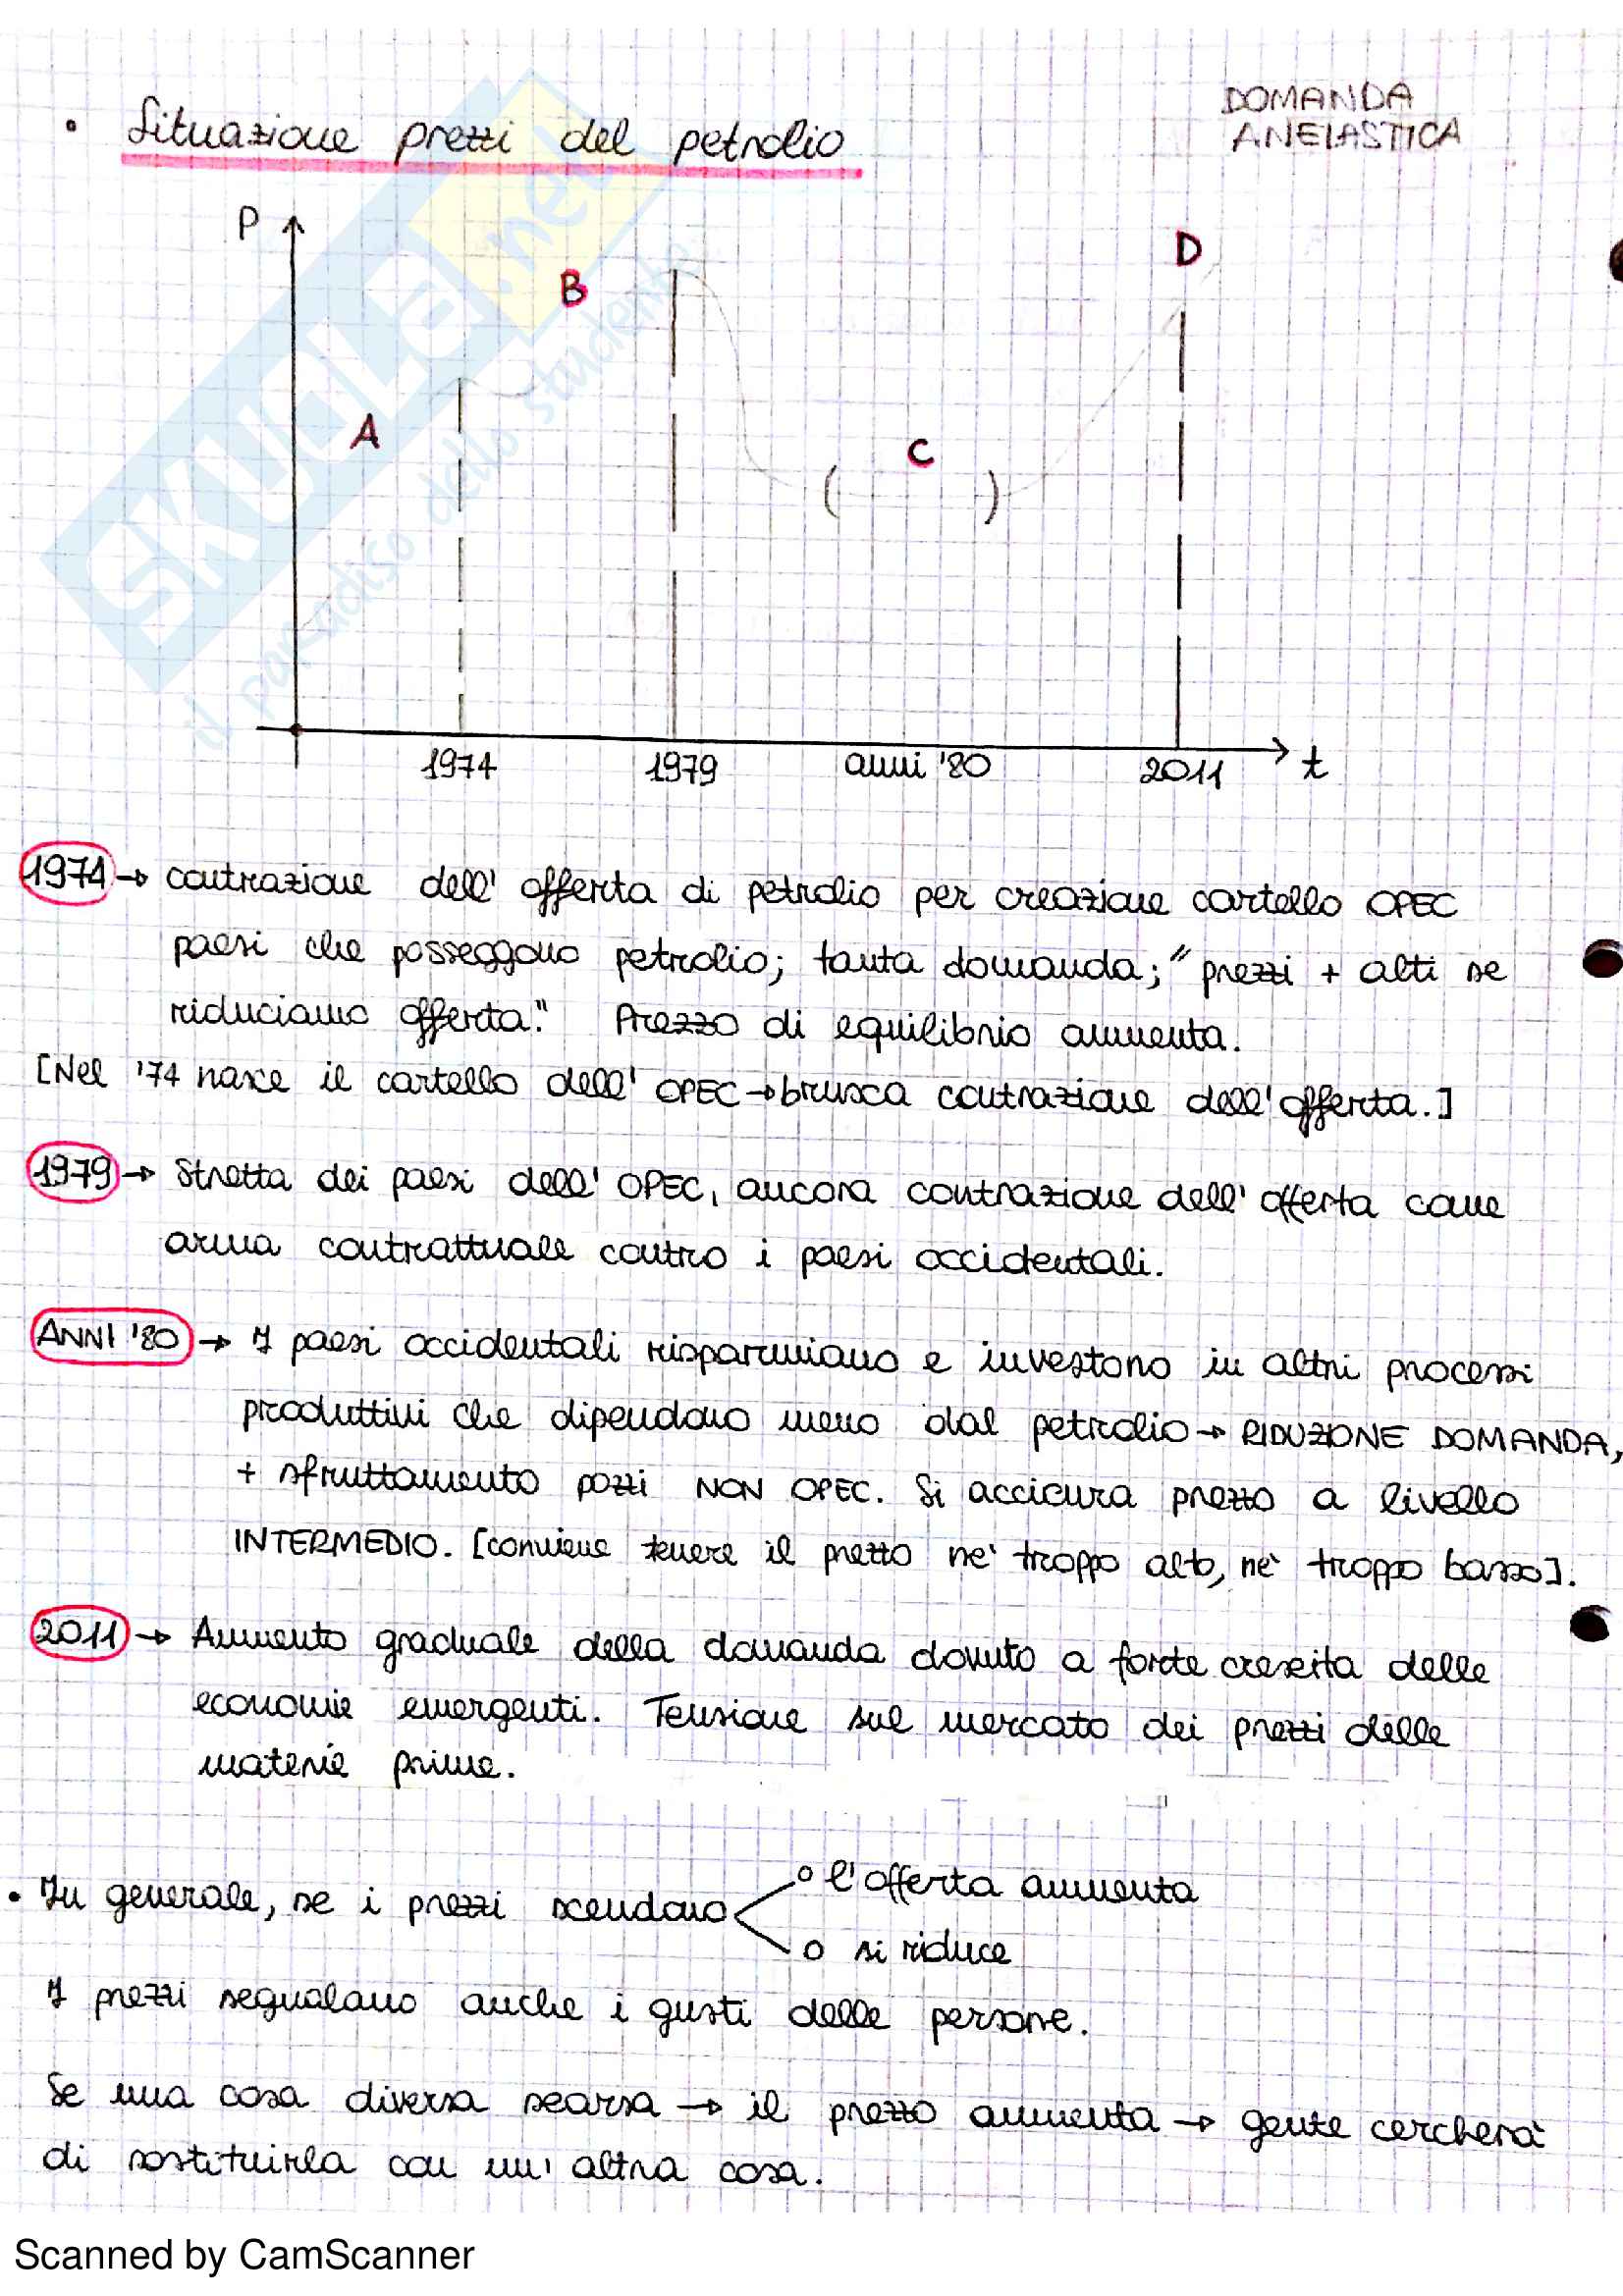 • Situazione prezzi del petrolio
DOMANDA
ANELASTICA
P
A
B
C
D
( )
1974 1979 anni '80 2011 t
SKUOLA.net
il paradiso dello studente
1974 → contrazione dell' offerta di petrolio per creazione cartello OPEC
paesi che posseggono petrolio; tanta domanda; "prezzi + alti se
riduciamo offerta." Prezzo di equilibrio aumenta.
[Nel '74 nasce il cartello dell' OPEC → brusca contrazione dell' offerta.]
1979 → Stretta dei paesi dell' OPEC, ancora contrazione dell' offerta come
arma contrattuale contro i paesi occidentali.
ANNI '80 → I paesi occidentali risparmiano e investono in altri processi
produttivi che dipendono meno dal petrolio → RIDUZIONE DOMANDA,
+ sfruttamento pozzi NON OPEC. Si accicura prezzo a livello
INTERMEDIO. [conviene tenere il prezzo ne' troppo alto, ne' troppo basso].
2011 → Aumento graduale della domanda dovuto a forte crescita delle
economie emergenti. Tensione sul mercato dei prezzi delle
materie prime.
• In generale, se i prezzi scendono < o l'offerta aumenta
o si riduce
I prezzi segnalano anche i gusti delle persone.
Se una cosa diversa scarsa → il prezzo aumenta → gente cercherà
di sostituirla con un' altra cosa.
Scanned by CamScanner